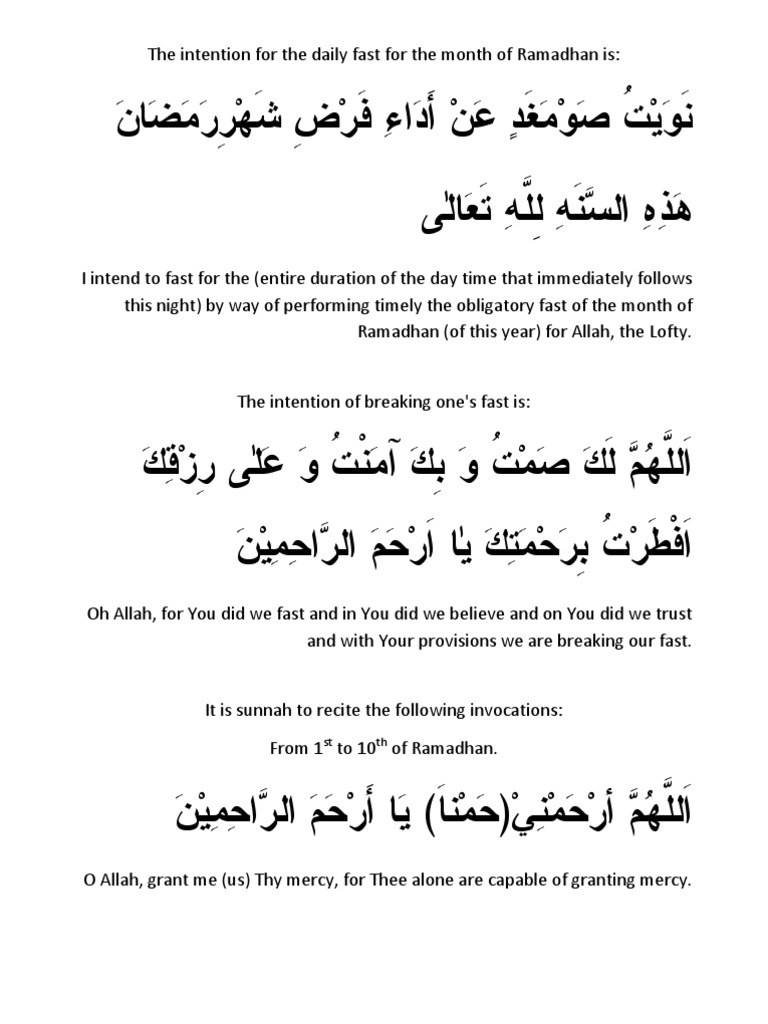 The intention for the daily fast for the month of Ramadhan is:
نَوَيْتُ صَوْمَغَدٍ عَنْ أَدَاءِ فَرْضِ شَهْرِرَمَضَانَ
هَذِهِ السَّنَهِ لِلَّهِ تَعَالٰى
I intend to fast for the (entire duration of the day time that immediately follows
this night) by way of performing timely the obligatory fast of the month of
Ramadhan (of this year) for Allah, the Lofty.
The intention of breaking one's fast is:
اَللَّهُمَّ لَكَ صَمْتُ وَ بِكَ آمَنْتُ وَ عَلٰى رِزْقِكَ
اَفْطَرْتُ بِرَحْمَتِكَ يٰا اَرْحَمَ الرَّاحِمِيْنَ
Oh Allah, for You did we fast and in You did we believe and on You did we trust
and with Your provisions we are breaking our fast.
It is sunnah to recite the following invocations:
From 1st to 10th of Ramadhan.
اَللَّهُمَّ أرْحَمْنِيْ(حَمْناَ) يَا أَرْحَمَ الرَّاحِمِيْنَ
O Allah, grant me (us) Thy mercy, for Thee alone are capable of granting mercy.